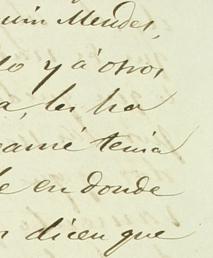 uin Mendes,
do y á otros
a, les ha
amé tenia
e en donde
n dicen que